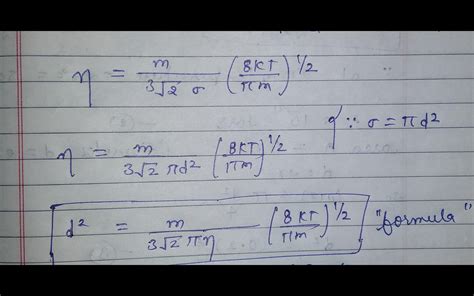 η = m / 3√2 σ (8KT / πm)^1/2
{ ∵ σ = πd²
η = m / 3√2 πd² (8KT / πm)^1/2
d² = m / 3√2 πη (8KT / πm)^1/2 "formula"